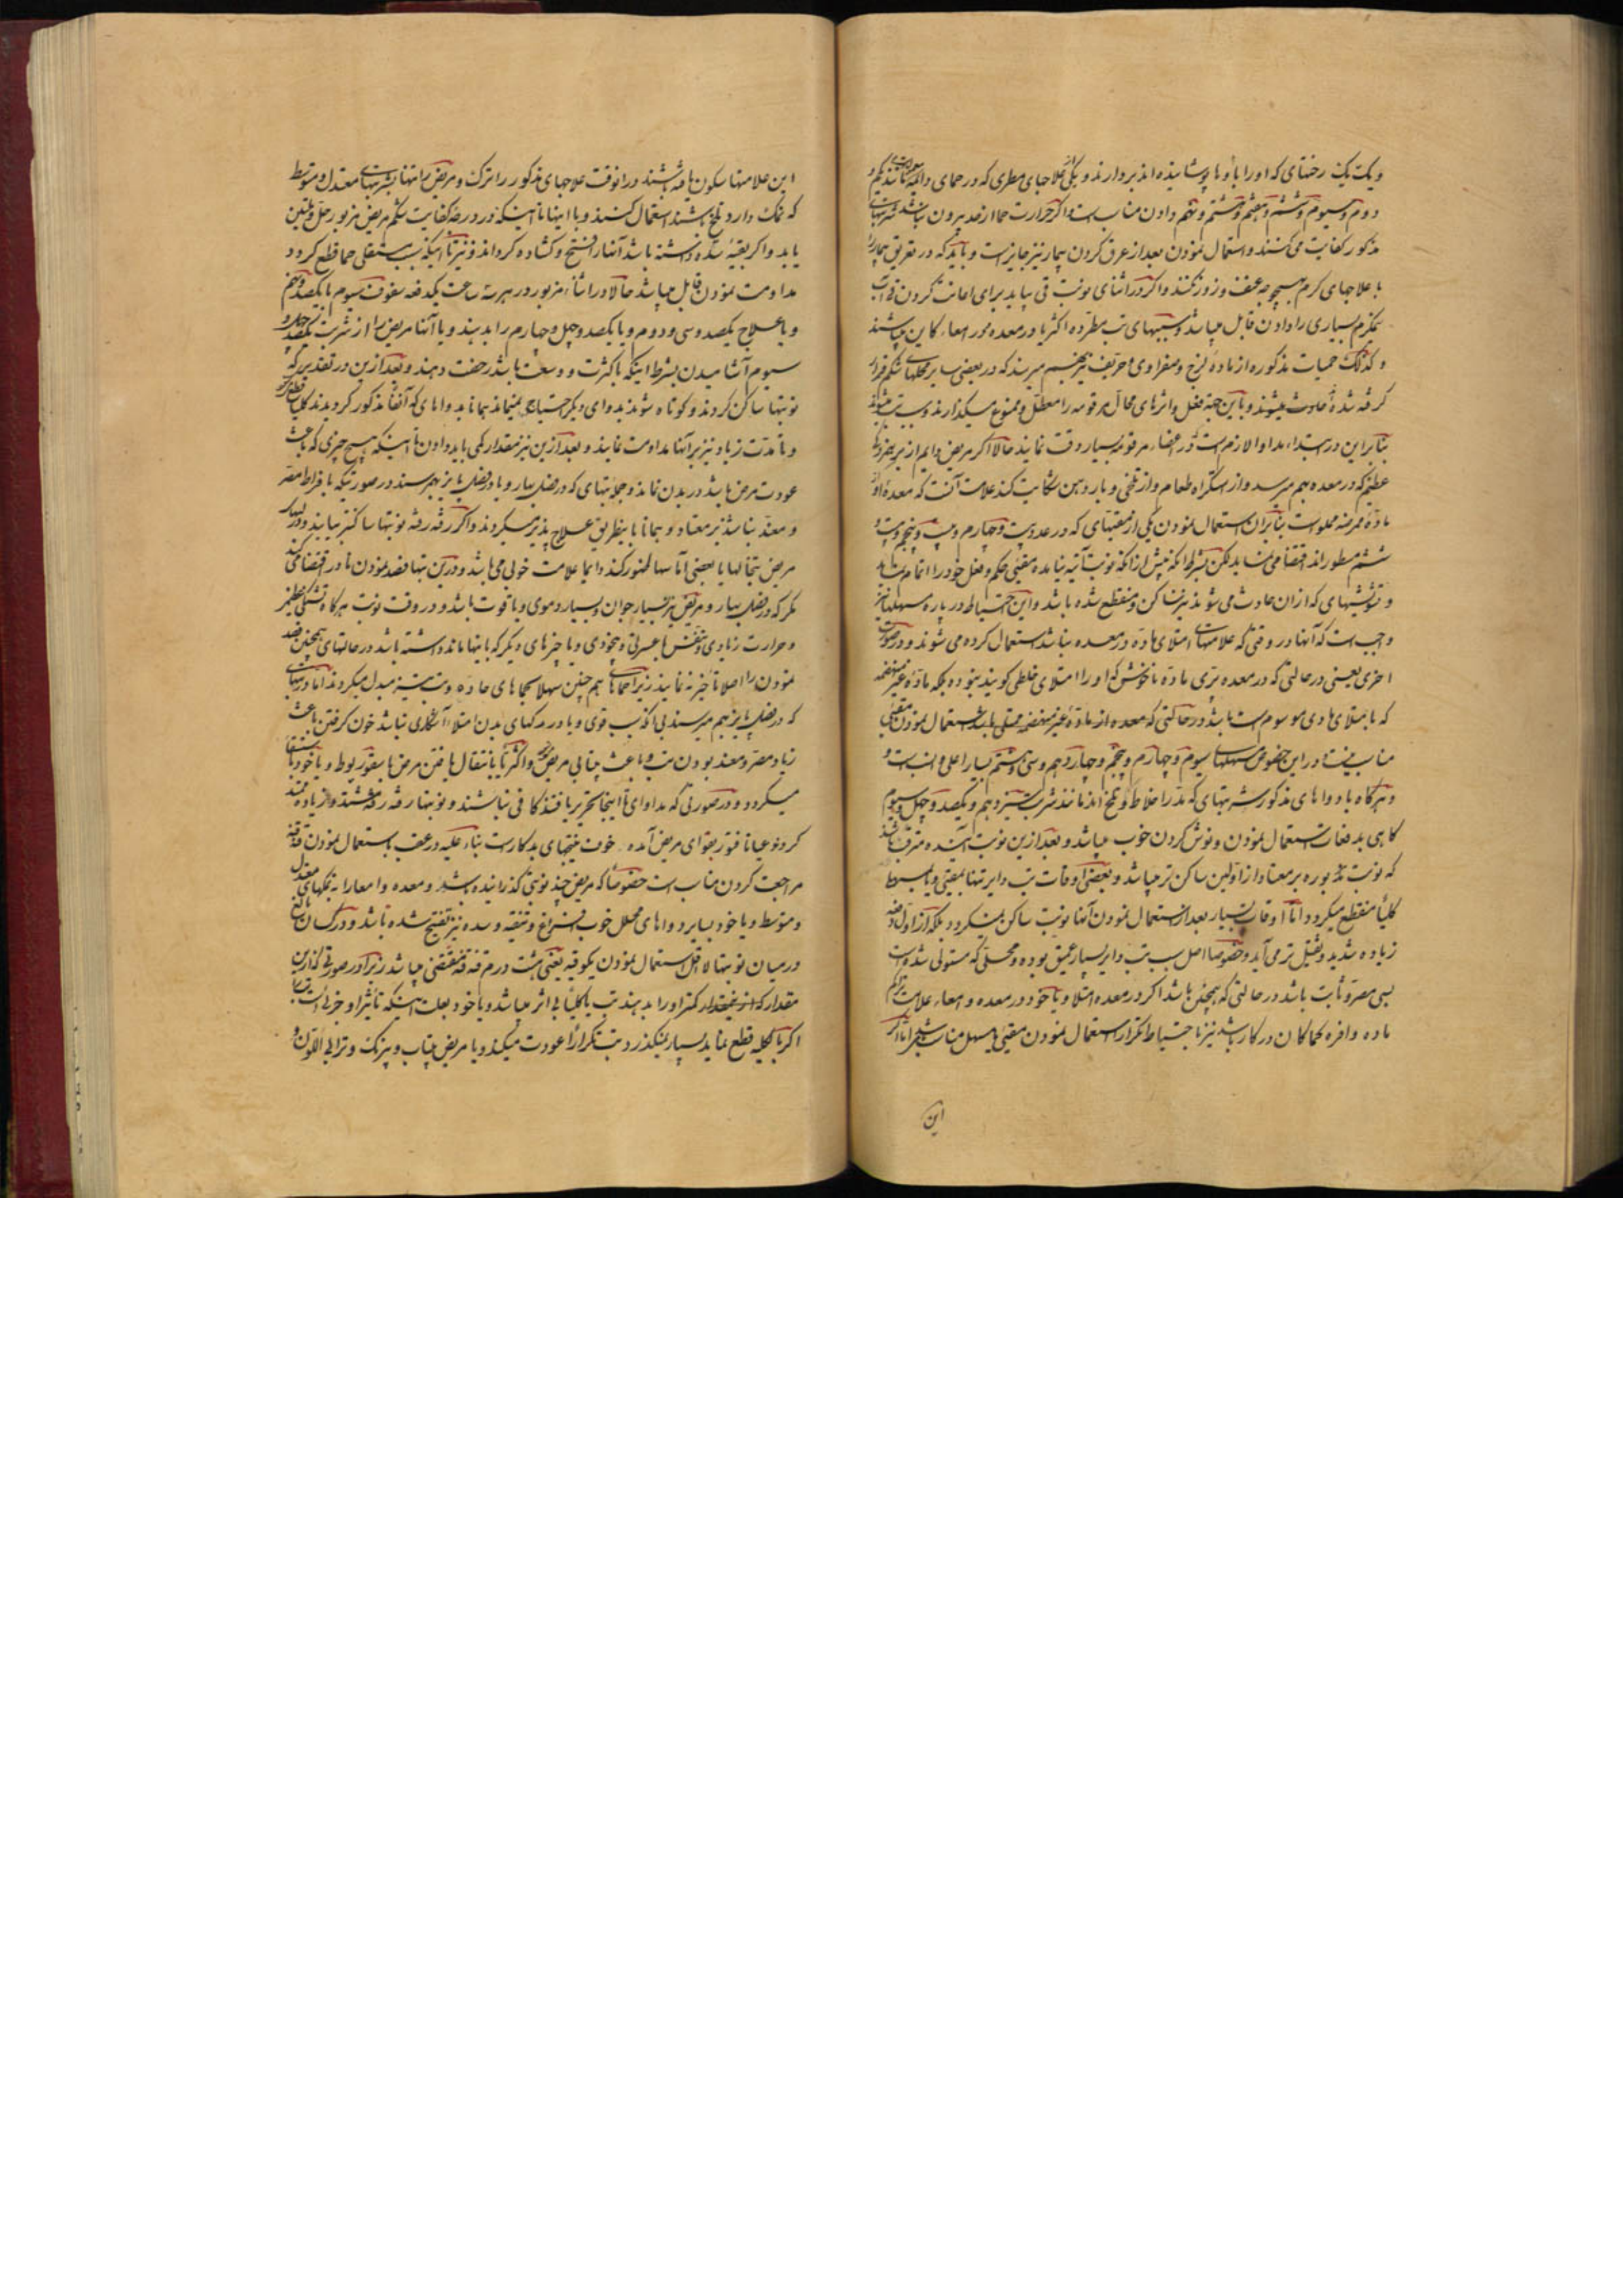 و یک یک رختهای که او را بآنها پوشانیده اند بردارند و یکی از علاجهای مطری که در حمای دائمه مانند یکم و
دوم و سیوم و ششم و هفتم و هشتم و نهم دادن مناب است و اگر حرارت حما از حد بیرون نباشد شربتهای
مذکور کفایت می کنند و استعمال نمودن بعد از عرق کردن بیمار نیز جایز است و باید که در تعریق بیمار را
با علاجهای گرم بهیچ وجه عنف و زور نکنند و اگر در اثنای نوبت قی بیاید برای اعانت کردن قی آب
نیمگرم بسیاری را دادن قابل میباشد و سببهای تب مطرده اکثر یا در معده و در امعاء کاین میباشند
و کذلک حمیات مذکوره از ماده لزج و صفراوی و حریف نیز بهم میرسند که در بعضی سایر محلهای شکم قرار
گرفته شده حادث میشوند و باین جهة فعل و اثرهای محال مرقومه را معطل و ممنوع میگذارند و سبب تب میشوند
بنابراین در ابتداء مداوا لازم است که در اعضاء مرقومه بسیار دقت نمایند حالا اگر مریض دایم از
عظیم که در معده بهم میرسد و از استکراه طعام و از تلخی و بار دهن شکایت کند علامت آنست که معده او از
ماده ممرضه مملوست بنابران استعمال نمودن یکی از مقیئهای که در عدد بیست و چهارم و بیست و پنجم و بیست و
ششم مسطور اند اقتضا می نماید لکن بشرط آنکه پیش از آنکه نوبت آتیه بیاید مقیئ حکم و فعل خود را اتمام نماید
و تشویشهای که ازان حادث می شوند نیز ساکن و منقطع شده باشد و این احتیاط در باره مسهلها نیز
واجب است که آنها در وقتی که علامتهای امتلای ماده در معده نباشد استعمال کرده می شوند و در صورت
اخری یعنی در حالتی که در معده تری ماده ناخوش که او را امتلای خلطی گویند نبوده بلکه ماده غیر منهضمه
که بامتلای مادی موسوم است باشد در حالتی که معده از ماده غیر منهضمه ممتلی باشد استعمال نمودن مقیئ
مناب نیست اما در این خصوص مسهلهای سیوم و چهارم و پنجم و چهاردهم و سی و هشتم بسیار اعلی و انسب است و
و هرگاه با دواهای مذکور شربتهای که مدر اخلاط و تلخ اند مانند شربت سیزدهم و یکصد و چهل و سیوم
گاهی بدفعات استعمال نمودن و نوش کردن خوب میباشد و بعد ازین نوبت آینده مترقب باشند
که نوبت مزبوره بر معتاد از اولین ساکن تر میباشد و بعضی اوقات تب دایر تنها بمقیئ و یا بمسهل
کلیا منقطع میگردد اما اوقات بسیار بعد از استعمال نمودن آنها نوبت ساکن نمیگردد بلکه از اول دفعه
زیاده شدید و ثقیل تر می آید و خصوصا اصل سبب تب دایر بسیار عمیق بوده و محلی که مستولی شده است
بسی مصر و ثابت باشد در حالتی که همچنین باشد اگر در معده امتلا و یا خود در معده و امعاء علامت تراکم
ماده وافره کماکان در کار باشد نیز با احتیاط تکرار استعمال نمودن مقیئ یا مسهل مناب میباشد اما اگر
این
این علامتها سکون یافته باشند در آنوقت علاجهای مذکور را ترک و مریض را تنها بشربتهای معتدل و متوسط
که نمک دار و تلخ باشند استعمال کنند و با اینها تا اینکه در درجه کفایت شکم مریض مزبور حل و تلیین
یابد و اگر بقیه سده داشته باشد آنها را تفتیح و گشاده گردانند و نیز تا اینکه سبب مستقلی حما قطع گردد
مداومت نمودن قابل میباشد حالا در اثناء مزبور در هر سه ساعت یکدفعه سفوف سیوم یا یکصد و پنجم
و یا علاج یکصد و سی و دوم و یا یکصد و چهل و چهارم را بدهند و با آنها مریض را از شربت یکصد و چهل و
سیوم آشامیدن بشرط اینکه با کثرت و وسعت باشد رخصت دهند و بعد ازین در تقدیری که
نوبتها ساکن گردند و کوتاه شوند بدوای دیگر احتیاج نمیماند همانا بدواهای که آنفا مذکور گردیدند کلیا قطع میگردد
و تا مدت زیاد نیز بر آنها مداومت نمایند و بعد ازین نیز مقدار کمی باید دادن تا اینکه هیچ چیزی که باعث
عودت مرض باشد در بدن نماند و جمله تبهای که در فصل بهار و یا در فصل پاییز بهم میرسند در صورتیکه بافراط مصر
و معند نباشند بر معتاد و همانا باینطریق علاج پذیر میگردند و اگر رفته رفته نوبتها ساکنتر بیایند و در لبهای
مریض تبخالها یا بعضی آماسها ظهور کند دایما علامت خوبی می باشد و در این تبها فصد نمودن نادر اقتضا می کند
مگر که در فصل بهار و مریض نیز بسیار جوان و بسیار دموی و با قوت باشد و در وقت نوبت هرگاه تشنگی عظیم
و حرارت زیادی و تنفس با عسرتی و بیخودی و یا چیزهای دیگر که باینها ماند داشته باشد در حالتهای همچنین فصد
نمودن را اصلا تأخیر ننمایند زیرا حماهای همچنین سهلا بحماهای حاده و تب تیز مبدل میگردند اما در تبهای
که در فصل پاییز بهم میرسند بی آنکه تب قوی و یا در رگهای بدن امتلاء آشکاری نباشد خون گرفتن باعث
زیاد مصر و معند بودن تب و باعث بیتابی مریض گشته و اکثریا بانتقال یافتن مرض بافتور مربوط و یا خود باستسقا
میگردد و در صورتی که مداوای تا اینجا تحریر یافتند کافی نباشند و نوبتها رفته رفته اشتداد و زیاده ممتد
گردند و عیانا فتور بقوای مریض آمده خوف نتیجهای بد کارست بناء علیه در عقب استعمال نمودن قنه قنه
مراجعت کردن مناب است خصوصا که مریض چند نوبتی گذرانیده باشد و معده و امعا را به تلیینهای معتدل
و متوسط و یا خود بسایر دواهای محلل خوب استفراغ و تنقیه و سده نیز تفتیح شده باشد و در کسان بالغ
در میان نوبتها لااقل استعمال نمودن یک وقیه یعنی هشت درم قنه قنه مقتضی میباشد زیرا در صورتی که ازین
مقدار کمتر او را بدهند تب یا کلیا بی اثر میباشد و یا خود بعلت اینکه تأثیر او جزئی است تب را
اگر بالکلیه قطع نماید بسیار نمیگذرد تب تکرارا عودت میکند و یا مریض بیتاب و بیرنگ و ترابی اللون و